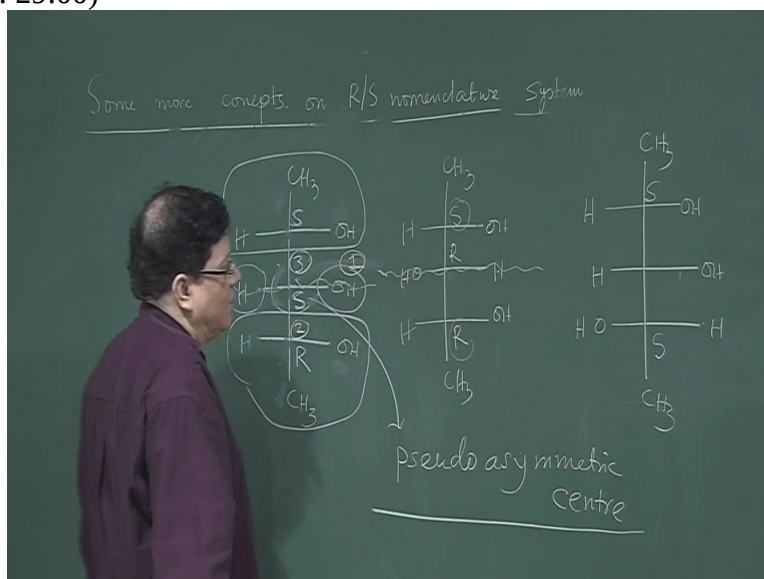 : 25:00)
Some more conepts. on R/S nomenclature System
CH3
S
H OH
3 1
H OH
S
2
H OH
R
CH3
CH3
S
H OH
R
HO H
H OH
R
CH3
CH3
S
H OH
H OH
HO H
S
CH3
pseudo asymmetric
centre